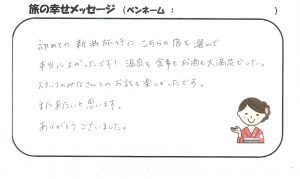 旅の幸せメッセージ (ペンネーム： )
初めての新潟旅行にこちらの宿を選んで
本当によかったです！ 温泉も食事もお酒も大満足でした。
スタッフのみなさんとのお話も楽しかったです。
また来たいと思います。
ありがとうございました。